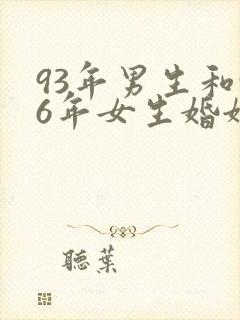 93年男生和
6年女生婚
聽葉